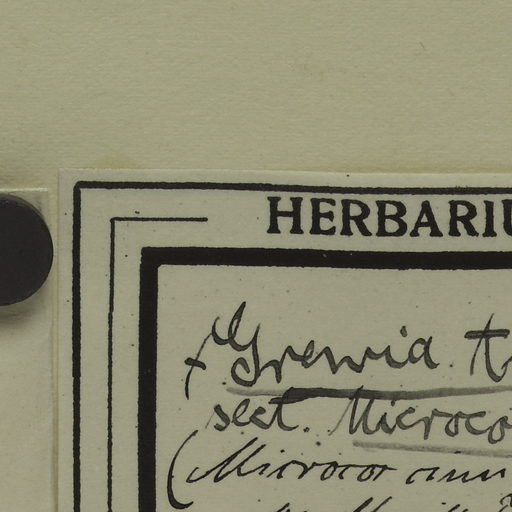 HERBARIU
Grewia t
sect. Microco
(Microcos